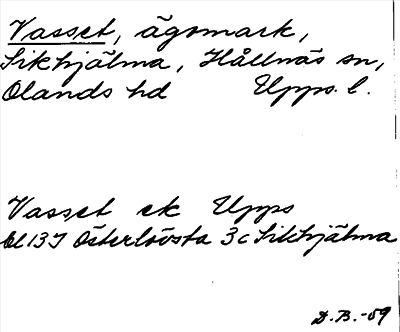 Vasset, ägomark,
Sikhjälma, Hållnäs sn,
Olands hd Upps. l.
Vasset ek Upps
bl 13I Österlövsta 3c Sikhjälma
D.B.-59